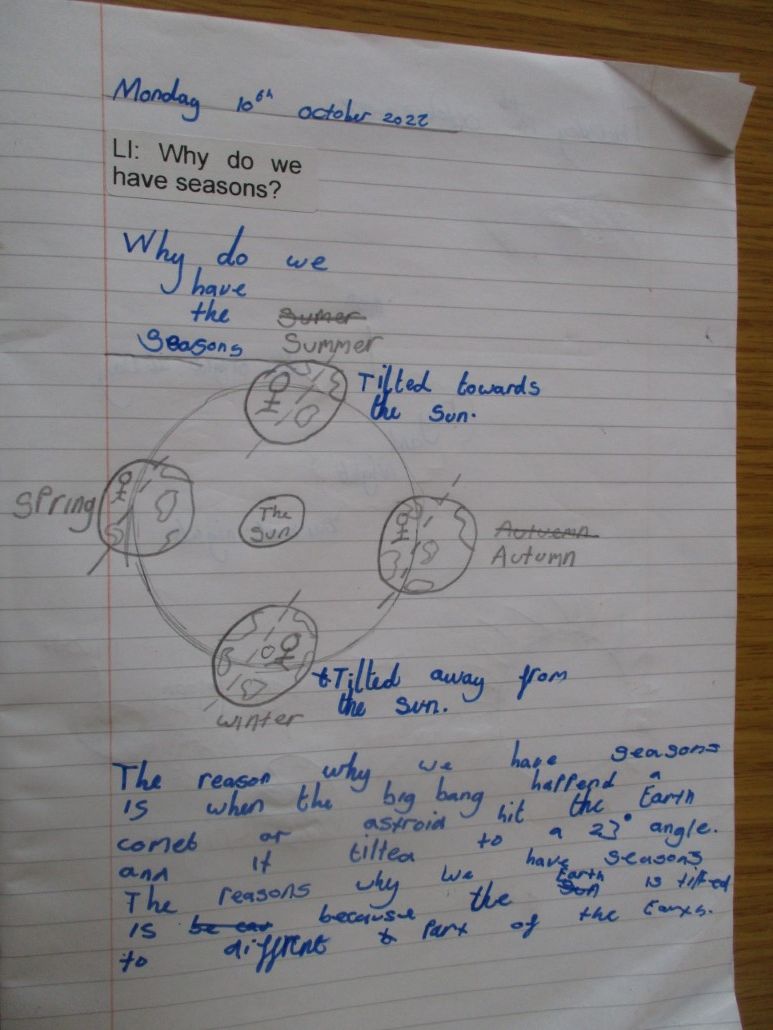 Monday 10th october 2022
LI: Why do we
have seasons?
Why do we
have
the
Seasons
Sumer
Summer
Tilted towards
the sun.
Spring
The
Sun
Autuemn
Autumn
Tilted away from
the sun.
winter
The reason why we have seasons
is when the big bang happend a
comet or astroid hit the Earth
and it tilted to a 23° angle.
The reasons why we have seasons
is because the Sun Earth is tilted
to different part of the Earth.